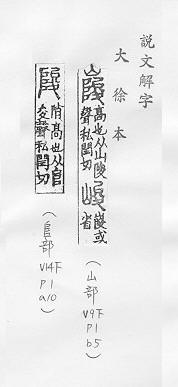 說文解字
大徐本
高也从山陖
聲私閏切
峻
或
省
(山部 V9下 P1 b5)
陖
陗高也从𨸏
夋聲私閏切
(𨸏部 V14下 P1 a10)